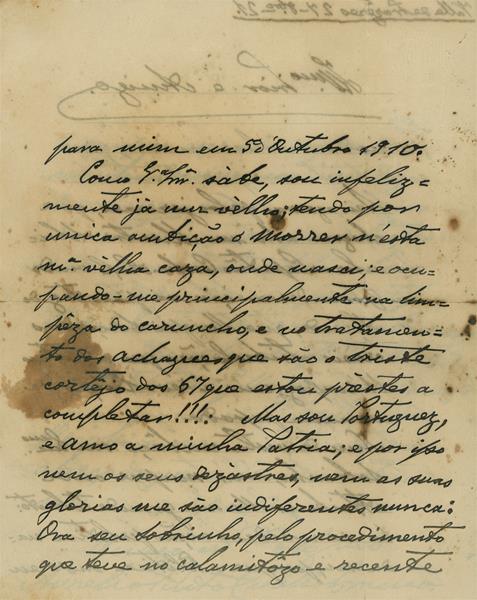 para mim em 5 d'Outubro 1910.
Como V. Exª. sabe, sou infeliz=
mente já um vélho; tendo por
unica ambição o morrer n'esta
mª. vélha caza, onde nasci; e ocu-
pando-me principalmente na lim-
pêza do caruncho, e no tratamen-
to dos achaques que são o triste
cortêjo dos 67 que estou préstes a
completar!!!: Mas sou Portuguez,
e amo a minha Patria; e por isso
nem os seus dezastres, nem as suas
glorias me são indiferentes nunca:
Ora seu sobrinho, pelo procedimento
que teve no calamitôzo e recente